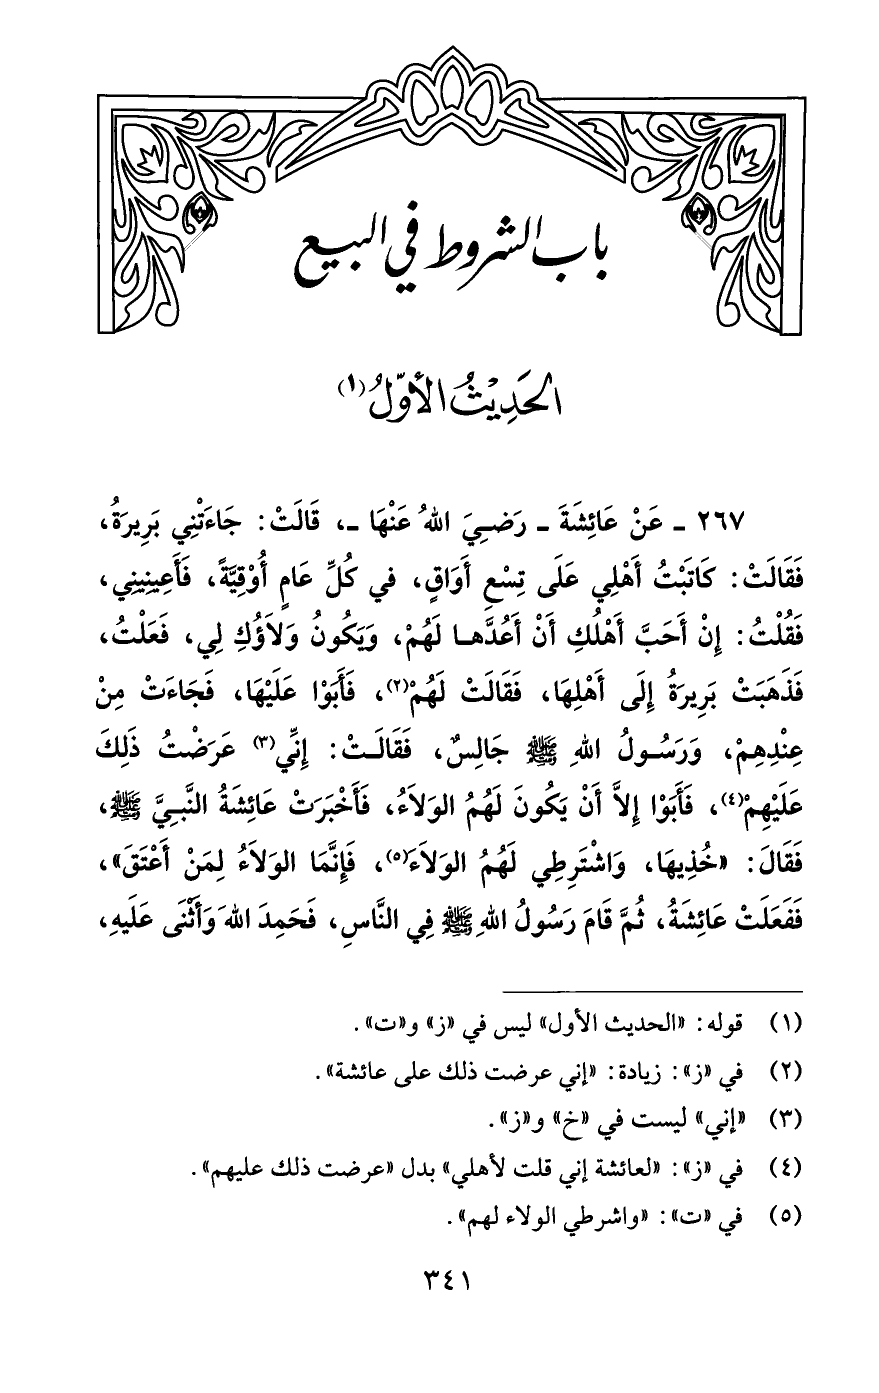 باب الشروط في البيع
الحَدِيْثُ الأَوَّلُ(١)
٢٦٧ ـ عَنْ عَائِشَةَ ـ رَضِيَ اللهُ عَنْهَا ـ، قَالَتْ: جَاءَتْنِي بَرِيرَةُ،
فَقَالَتْ: كَاتَبْتُ أَهْلِي عَلَى تِسْعِ أَوَاقٍ، في كُلِّ عَامٍ أُوْقِيَّةً، فَأَعِينِينِي،
فَقُلْتُ: إِنْ أَحَبَّ أَهْلُكِ أَنْ أَعُدَّهـا لَهُمْ، وَيَكُونُ وَلاَؤُكِ لِي، فَعَلْتُ،
فَذَهَبَتْ بَرِيرَةُ إِلَى أَهْلِهَا، فَقَالَتْ لَهُمْ(٢)، فَأَبَوْا عَلَيْهَا، فَجَاءَتْ مِنْ
عِنْدِهِمْ، وَرَسُولُ اللهِ ﷺ جَالِسٌ، فَقَالَـتْ: إِنِّي(٣) عَرَضْتُ ذَلِكَ
عَلَيْهِمْ(٤)، فَأَبَوْا إِلاَّ أَنْ يَكُونَ لَهُمُ الوَلاَءُ، فَأَخْبَرَتْ عَائِشَةُ النَّبِيَّ ﷺ،
فَقَالَ: «خُذِيهَا، وَاشْتَرِطِي لَهُمُ الوَلاَءَ(٥)، فَإِنَّمَا الوَلاَءُ لِمَنْ أَعْتَقَ»،
فَفَعَلَتْ عَائِشَةُ، ثُمَّ قَامَ رَسُولُ اللهِ ﷺ فِي النَّاسِ، فَحَمِدَ اللهَ وَأَثْنَى عَلَيهِ،
(١) قوله: «الحديث الأول» ليس في «ز» و«ت».
(٢) في «ز»: زيادة: «إني عرضت ذلك على عائشة».
(٣) «إني» ليست في «خ» و«ز».
(٤) في «ز»: «لعائشة إني قلت لأهلي» بدل «عرضت ذلك عليهم».
(٥) في «ت»: «واشرطي الولاء لهم».
٣٤١